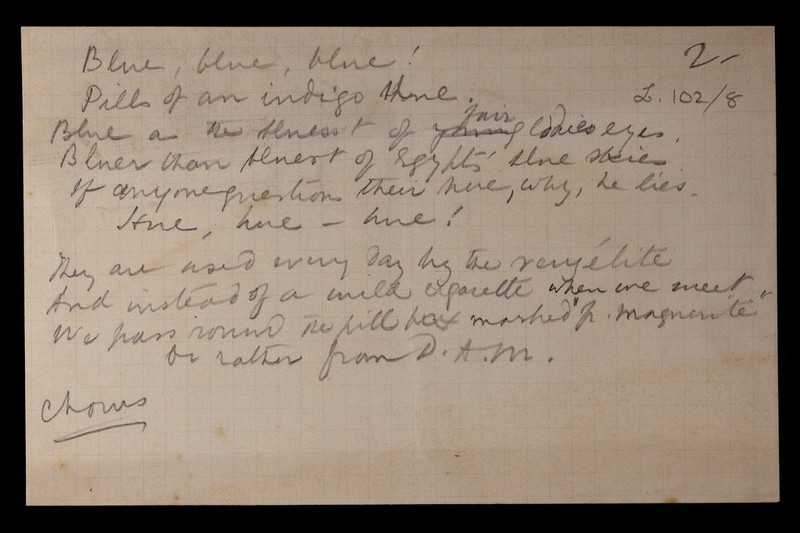 Blue, blue, blue!
2-
Pills of an indigo blue.
L. 102/8
fair
Blue as the bluest of young ladies eyes,
Bluer than bluest of Egypts' blue skies
If anyone questions their hue, why, he lies.
Hue, hue - hue!
They are used every day by the very élite
And instead of a mild cigarette when we meet,
We pass round the pill box marked "fr. Marguerite"
Or rather from D.A.M.
Chorus